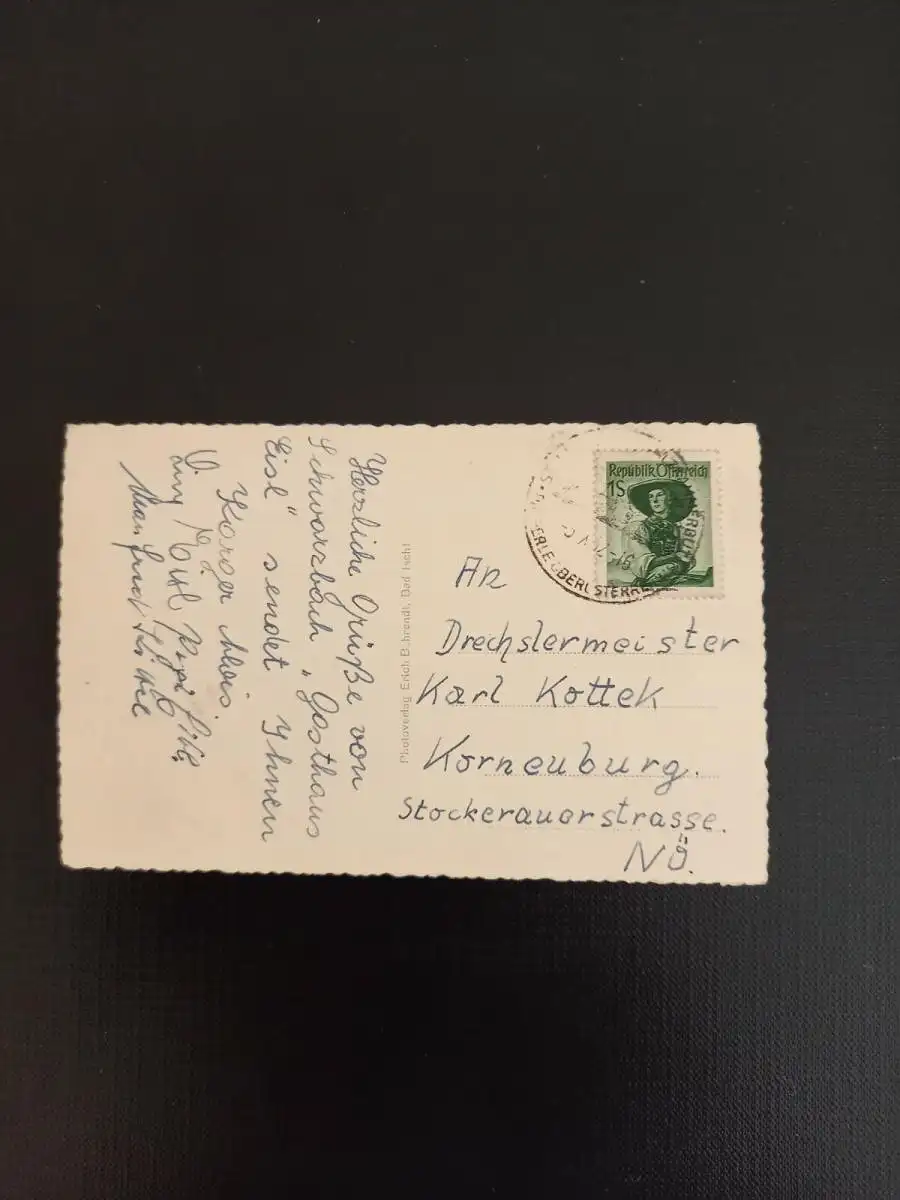 Herzliche Grüße von
Schwarzbach "Gasthaus
Eisl" sendet Yhnen
Karger Alois.
Photoverlag Erich Behrendt, Bad Ischl
Republik Österreich
1S
An
Drechslermeister
Karl Kottek
Korneuburg.
Stockerauerstrasse.
NÖ.